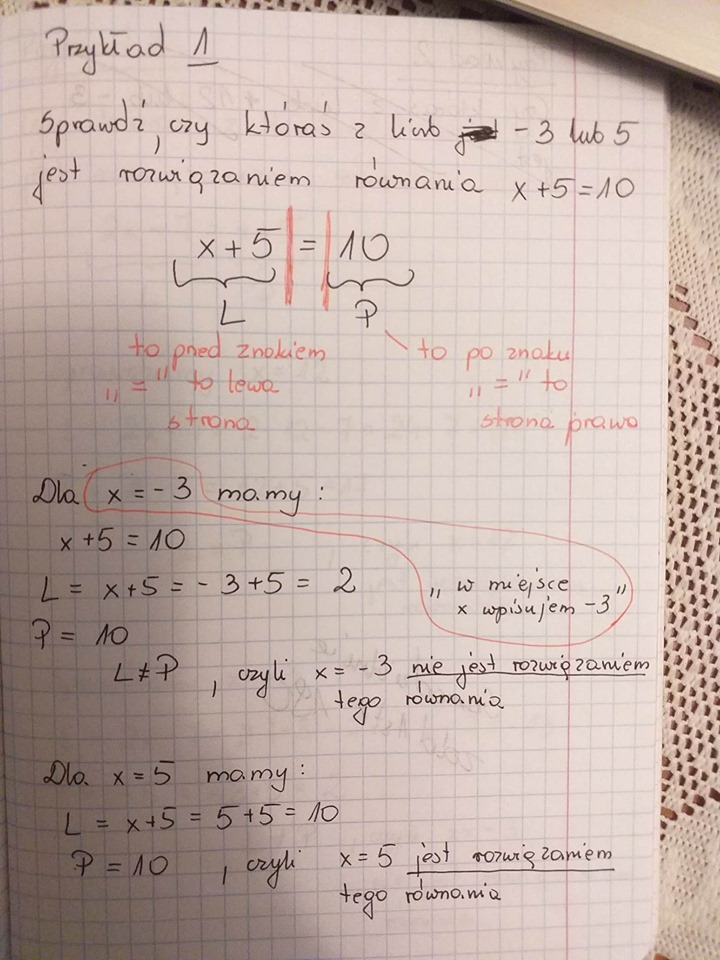 Przykład 1
Sprawdź, czy któraś z liczb -3 lub 5
jest rozwiązaniem równania x+5=10
x+5 = 10
L P
to przed znakiem
„=" to lewa
strona
to po znaku
„=" to
strona prawa
Dla x = -3 mamy:
x+5 = 10
L = x+5 = -3+5 = 2
„w miejsce
x wpisujem -3"
P = 10
L≠P, czyli x = -3 nie jest rozwiązaniem
tego równania
Dla x=5 mamy:
L = x+5 = 5+5 = 10
P = 10, czyli x=5 jest rozwiązaniem
tego równania